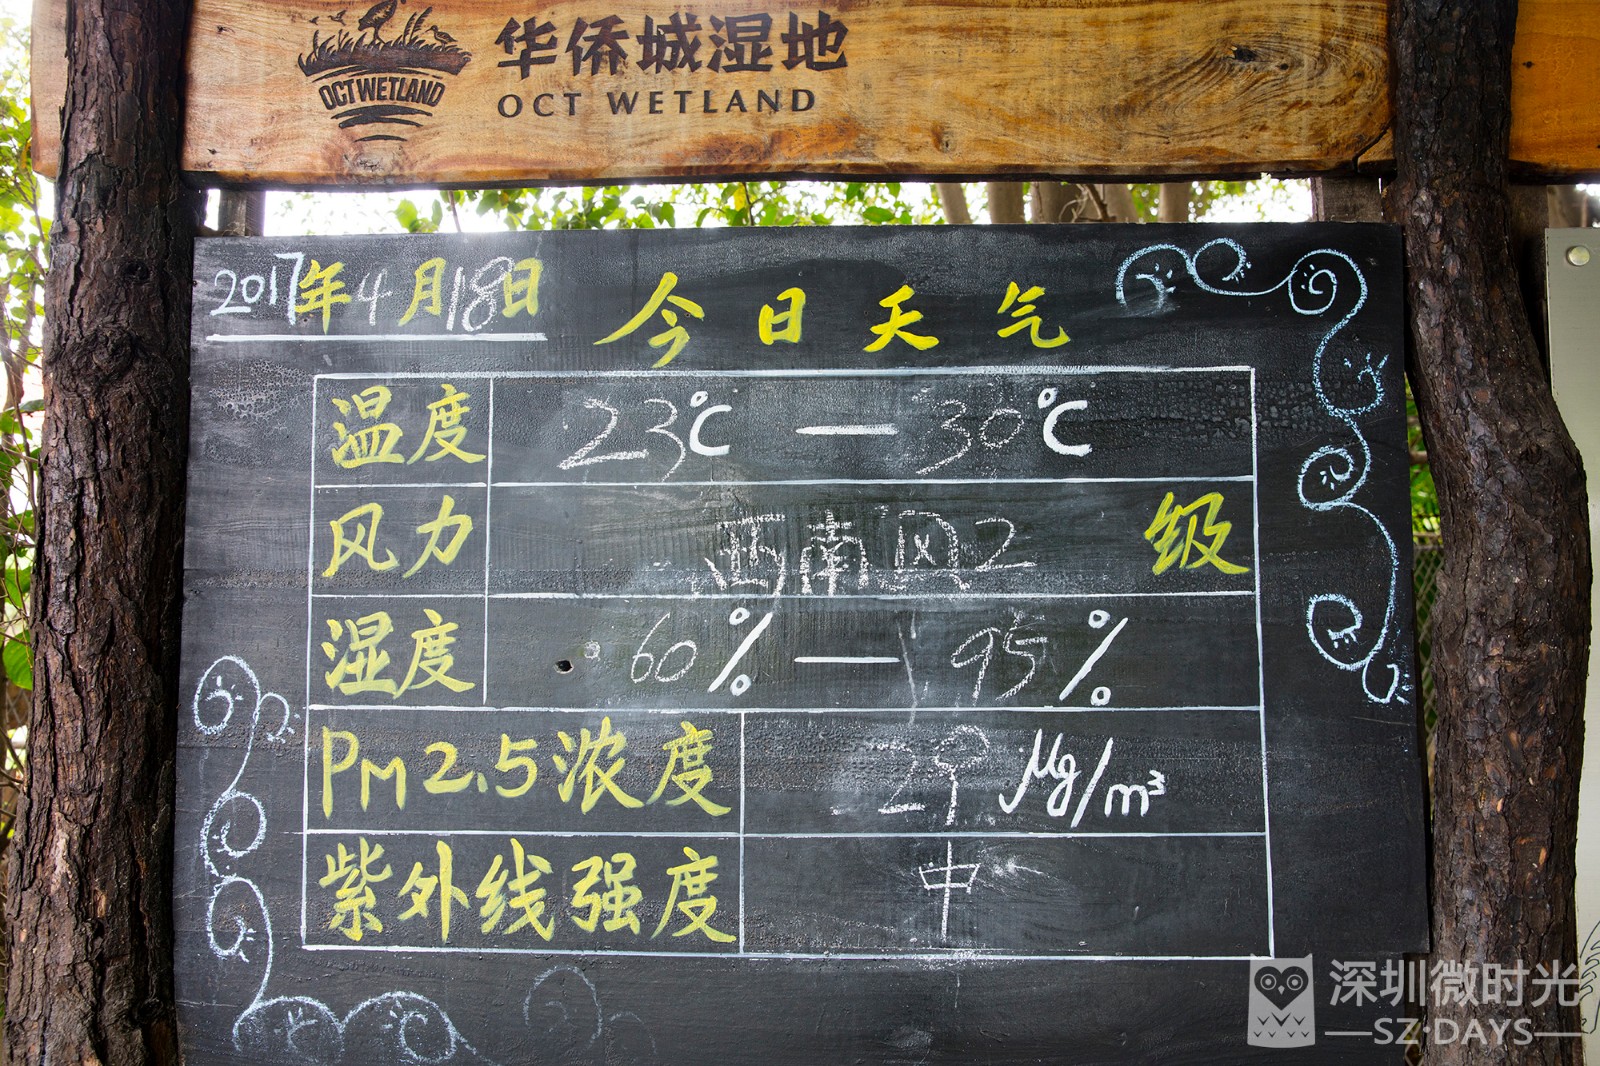 OCT WETLAND
华侨城湿地
OCT WETLAND
2017年4月18日
今日天气
温度 23℃ — 30℃
风力 西南风2 级
湿度 60% — 95%
Pm2.5浓度 29 μg/m³
紫外线强度 中
深圳微时光
—SZ·DAYS—